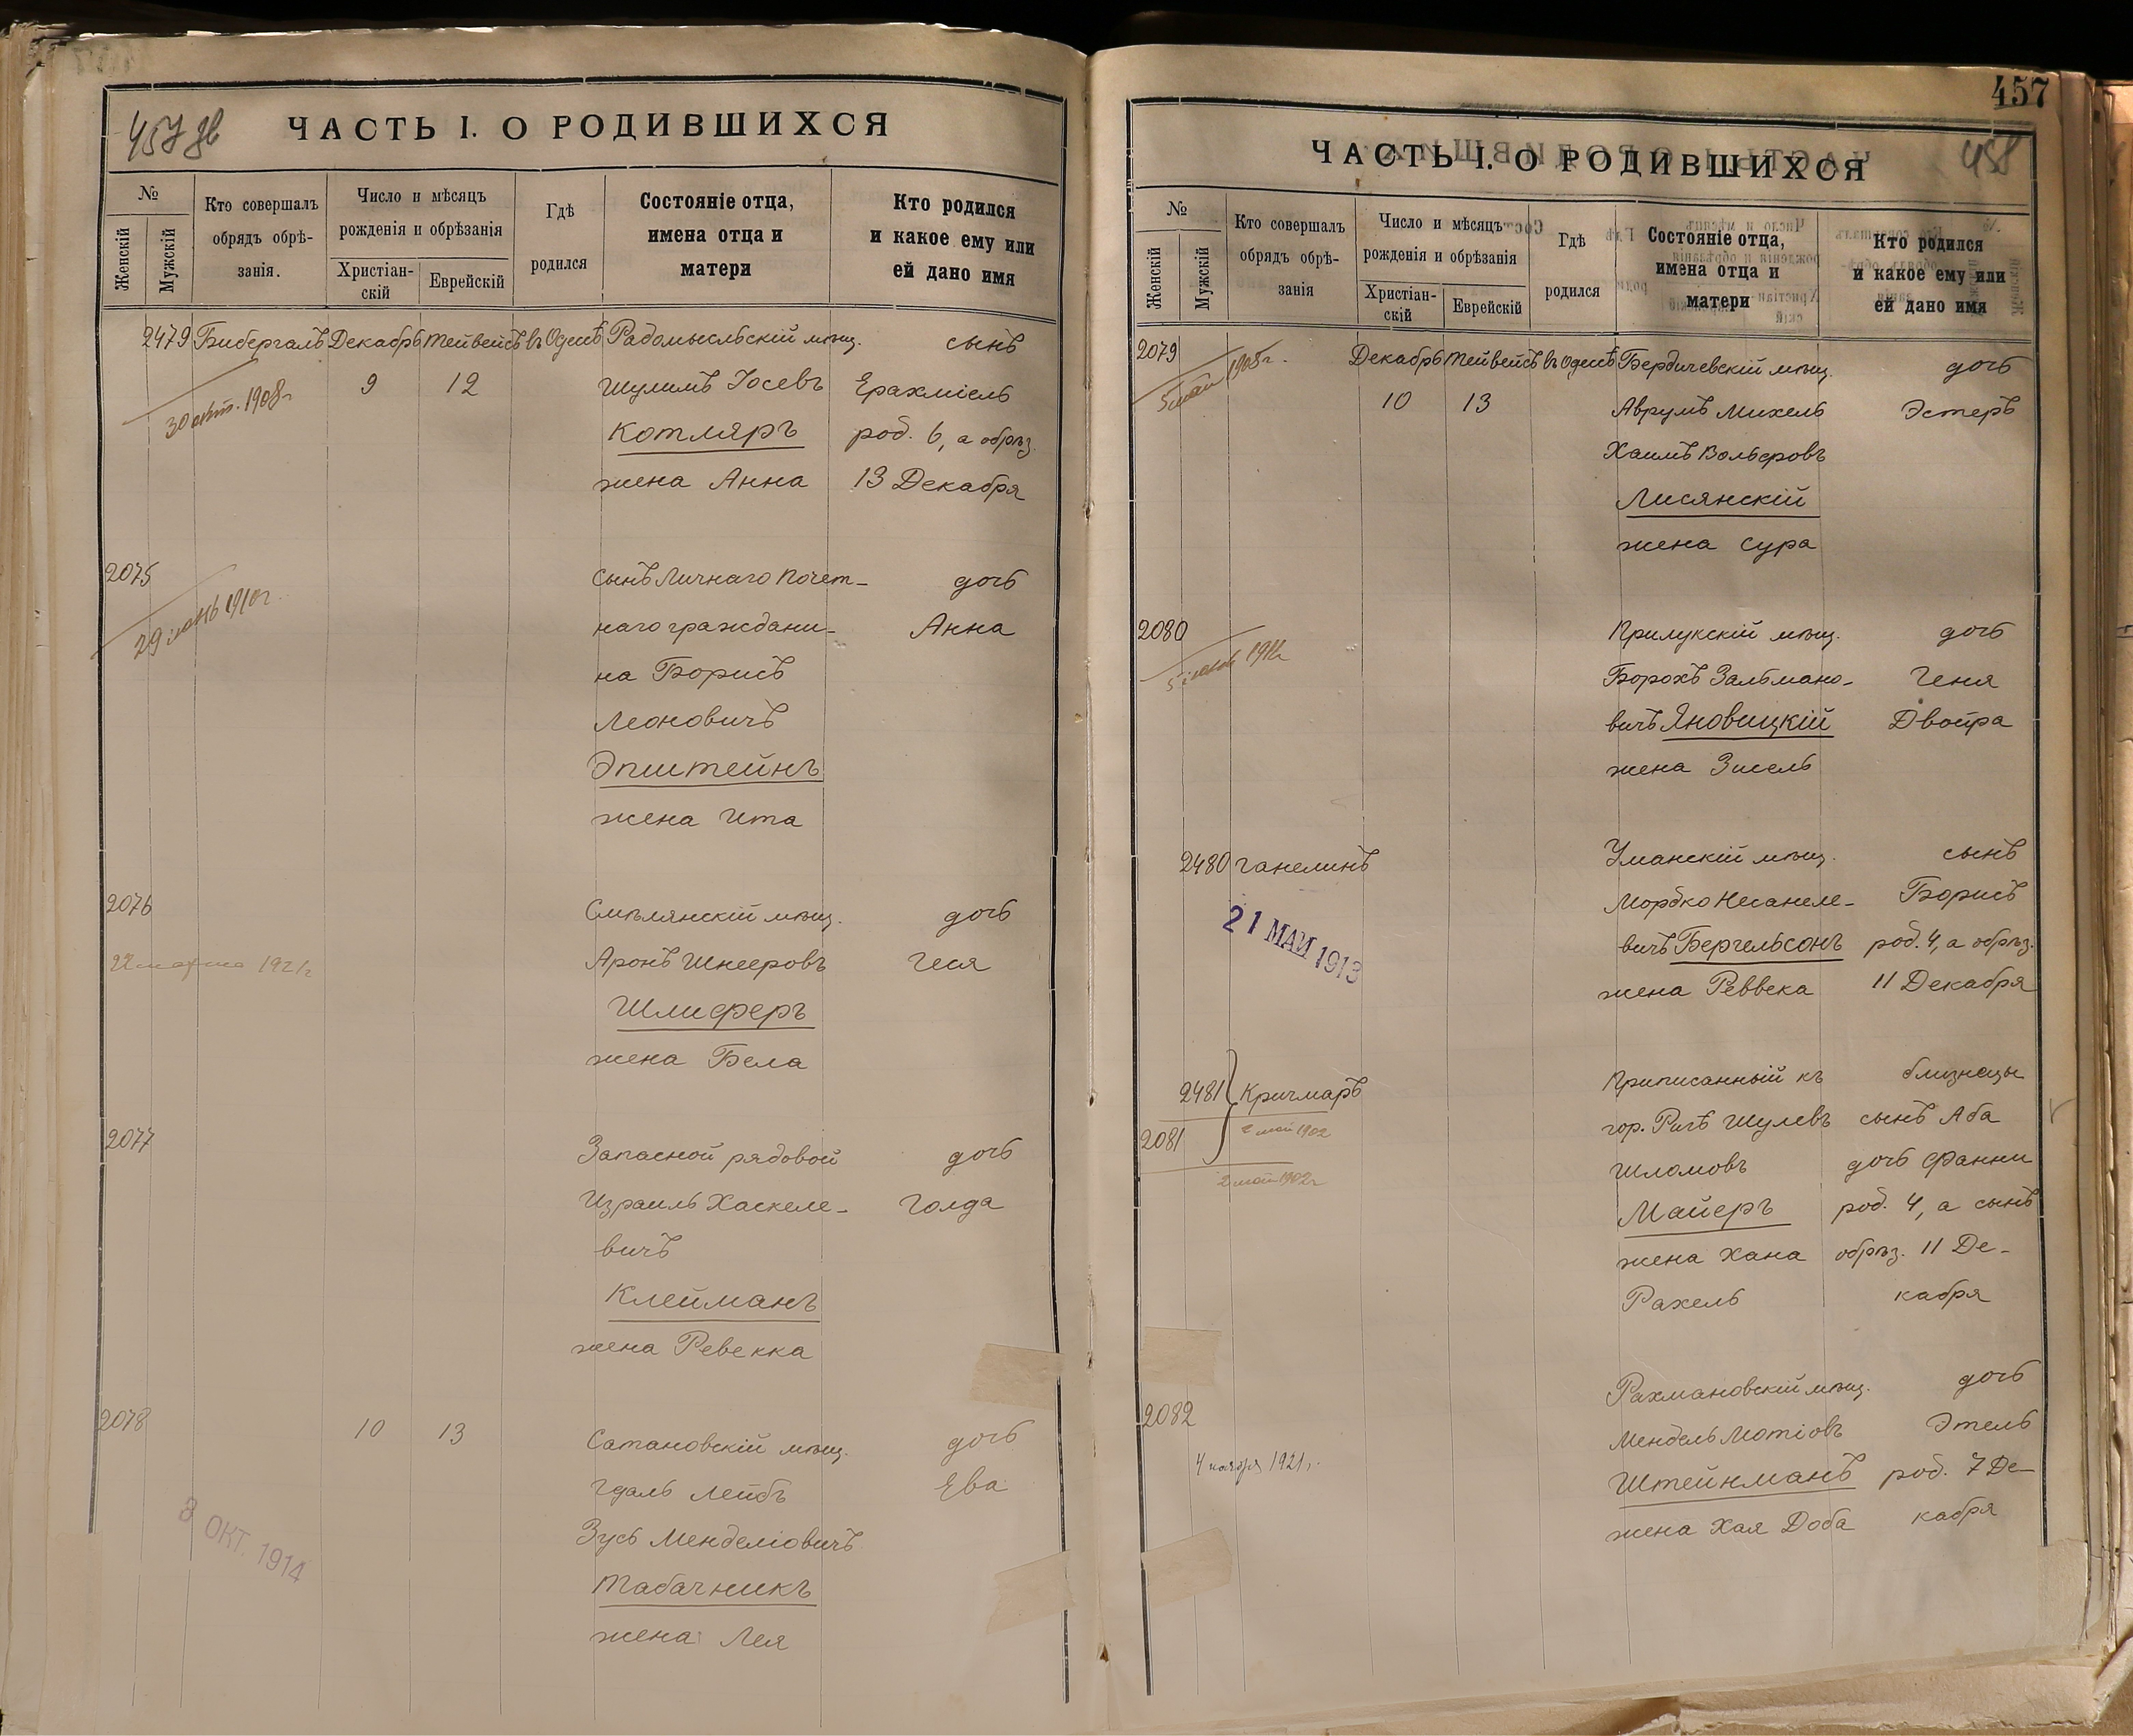 457 зв
ЧАСТЬ I. О РОДИВШИХСЯ
№
Женскій
Мужскій
Кто совершалъ
обрядъ обрѣ-
занія.
Число и мѣсяцъ
рожденія и обрѣзанія
Христіан-
скій
Еврейскій
Гдѣ
родился
Состояніе отца,
имена отца и
матери
Кто родился
и какое ему или
ей дано имя
2479 Бибергалъ Декабрь Тейвейсъ въ Одессѣ Радомысльскій мѣщ. сынъ
30 окт. 1908 г. 9 12 Шулимъ Іосевъ Ерахміель
Котляръ род. 6, а обрѣз.
жена Анна 13 Декабря
2075 сынъ Личнаго почет- дочь
29 іюнь 1910 г. наго граждани- Анна
на Борисъ
Леоновичъ
Эпштейнъ
жена Ита
2076 Смѣлянскій мѣщ. дочь
22 марта 1921 г. Аронъ Шнееровъ Геся
Шлиферъ
жена Бела
2077 Запасной рядовой дочь
Израиль Хаскеле- Голда
вичъ
Клейманъ
жена Ревекка
2078 10 13 Сатановскій мѣщ. дочь
Гдаль Лейбъ Ева
Зусь Менделіовичъ
3 ОКТ. 1914
Табачникъ
жена Лея
457
458
ЧАСТЬ I. О РОДИВШИХСЯ
№
Женскій
Мужскій
Кто совершалъ
обрядъ обрѣ-
занія
Число и мѣсяцъ
рожденія и обрѣзанія
Христіан-
скій
Еврейскій
Гдѣ
родился
Состояніе отца,
имена отца и
матери
Кто родился
и какое ему или
ей дано имя
2079 Декабрь Тейвейсъ въ Одессѣ Бердичевскій мѣщ. дочь
5 мая 1908 г. 10 13 Аврумъ Михель Эстеръ
Хаимъ Вольфровъ
Лисянскій
жена Сура
2080 Прилукскій мѣщ. дочь
Борохъ Зальмано- Геня
вичъ Яновицкій Двойра
жена Зисель
2480 Ганелинъ Уманскій мѣщ. сынъ
21 МАЙ 1913 Мордко Несанеле- Борисъ
вичъ Бергельсонъ род. 4, а обрѣз.
жена Реввека 11 Декабря
2481 Кричмаръ Приписанный къ близнецы
2081 2 мая 1902 гор. Ригѣ Шулевъ сынъ Аба
2 мая 1902 г. Шломовъ дочь Фанни
Майеръ род. 4, а сынъ
жена Хана обрѣз. 11 Де-
Рахель кабря
2082 Рахмановскій мѣщ. дочь
4 ноября 1921 г. Мендель Мотіовъ Этель
Штейнманъ род. 7 Де-
жена Хая Доба кабря